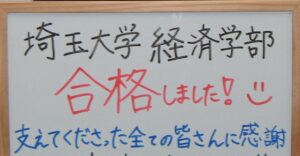 埼玉大学 経済学部
合格しました!
支えてくださった全ての皆さんに感謝